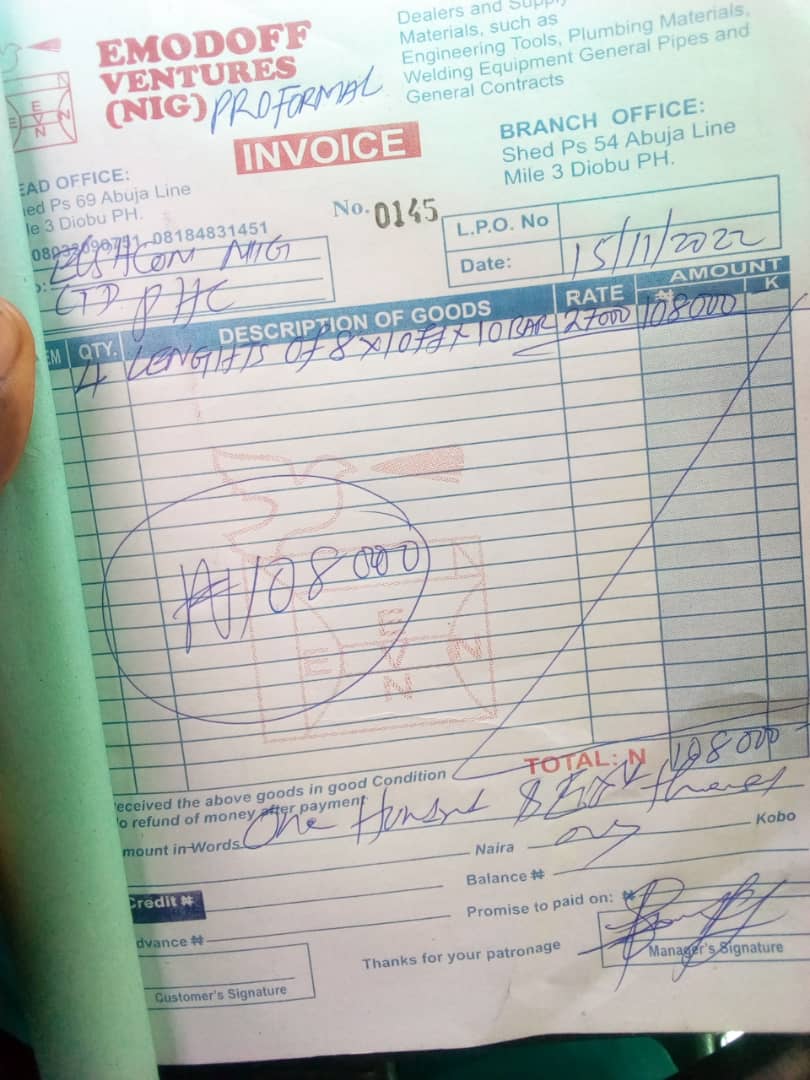 EMODOFF
VENTURES
(NIG) PROFORMAL
Dealers and Supply
Materials, such as
Engineering Tools, Plumbing Materials,
Welding Equipment General Pipes and
General Contracts
INVOICE
EAD OFFICE:
ed Ps 69 Abuja Line
le 3 Diobu PH.
08184831451
BRANCH OFFICE:
Shed Ps 54 Abuja Line
Mile 3 Diobu PH.
No. 0145
L.P.O. No
Date: 15/11/2022
NIG
LTD PHC
EM QTY. DESCRIPTION OF GOODS RATE AMOUNT
₦ K
4 LENGTHS OF 8 X 10FT X 10 BAR 27000 108000
₦108000
E EVN N
TOTAL: N 108000
eceived the above goods in good Condition
o refund of money after payment
mount in Words One Hundred & Eight
Naira only Kobo
Credit ₦ Balance ₦
dvance ₦ Promise to paid on: ₦
Customer's Signature
Thanks for your patronage
Manager's Signature